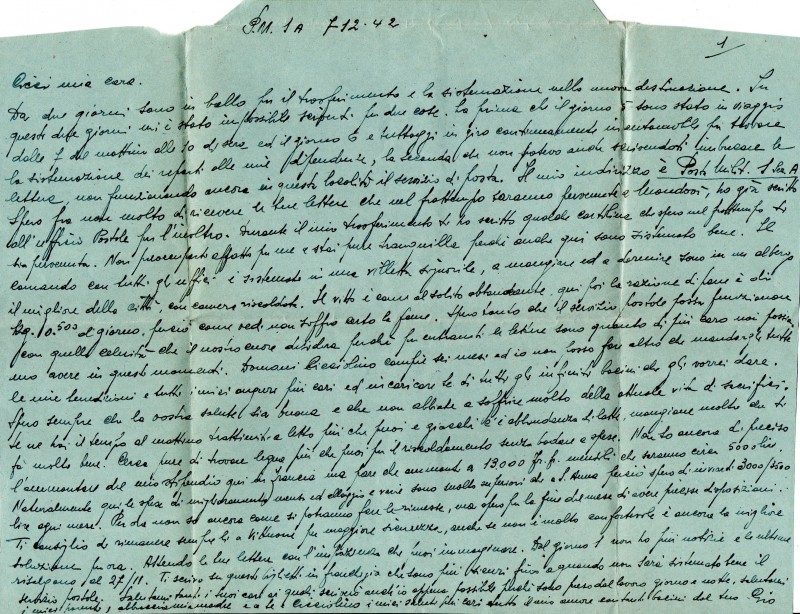 P.M. 1A 7-12-42
1/
Cicci mia cara.
Da due giorni sono in ballo per il trasferimento e la sistemazione nella nuova destinazione. In
questi due giorni mi è stato impossibile scriverti per due cose. la prima che il giorno 5 sono stato in viaggio
dalle 7 del mattino alle 10 di sera ed il giorno 6 e tutt'oggi in giro continuamente in automobile per trovare
la sistemazione dei reparti alle mie dipendenze, la seconda che non potevo anche scrivendoti imbucare le
lettere, non funzionando ancora in questa località il servizio di posta. Il mio indirizzo è Posta Milit. 1 Sez A
Spero fra non molto di ricevere le tue lettere che nel frattempo saranno pervenute a ho già scritto
all'ufficio Postale per l'inoltro. Durante il mio trasferimento ti ho scritto qualche cartolina che spero nel frattempo ti
sia pervenuta. Non preoccuparti affatto per me e stai pure tranquilla perché anche qui sono sistemato bene. Il
comando con tutti gli uffici è sistemato in una villetta signorile, a mangiare ed a dormire sono in un albergo
il migliore della città, con camere riscaldate. Il vitto è come al solito abbondante, qui poi la razione di pane è di
Kg. 0.500 al giorno, perciò come vedi non soffro certo la fame. Spero tanto che il servizio postale possa funzionare
con quella celerità che il nostro cuore desidera perché per entrambi le lettere sono quanto di più caro noi possia-
mo avere in questi momenti. Domani Cicciolino compie sei mesi ed io non posso fare altro che mandargli tutte
le mie benedizioni e tutti i miei auguri più cari ed incaricare te di tutti gli infiniti bacini che gli vorrei dare.
Spero sempre che la vostra salute sia buona e che non abbiate a soffrire molto della attuale vita di sacrifici.
Se ne hai il tempo al mattino trattieniti a letto più che puoi e giacché c'è abbondanza di latte, mangiane molto che ti
fa molto bene. Cerca pure di trovare legna più che puoi per il riscaldamento senza badare a spese. Non so ancora di preciso
l'ammontare del mio stipendio qui in Francia ma pare che ammonti a 13000 Fr. f. mensili che saranno circa 5000 lire
Naturalmente qui le spese di miglioramento mensa ed alloggio e varie sono molto superiori che ad perciò spero di inviarti 3000/3500
lire ogni mese. Per da non so ancora come si potranno fare le rimesse, ma spero per la fine del mese di avere precise disposizioni.
Ti consiglio di rimanere sempre lì a per maggiore sicurezza, anche se non è molto confortevole è ancora la migliore
soluzione per ora. Attendo le tue lettere con l'impazienza che puoi immaginare. Dal giorno 1 non ho più notizie e le ultime
risalgono al 27/11. Ti scrivo su questi biglietti in franchigia che sono più sicuri fino a quando non sarà sistemato bene il
servizio postale. Salutami tanto i tuoi cari ai quali scriverò anch'io appena possibile perché sono preso dal lavoro giorno e notte, salutami
i miei parenti, abbraccia mia madre e a te e Cicciolino i miei saluti più cari tutto il mio amore con tanti bacini dal tuo